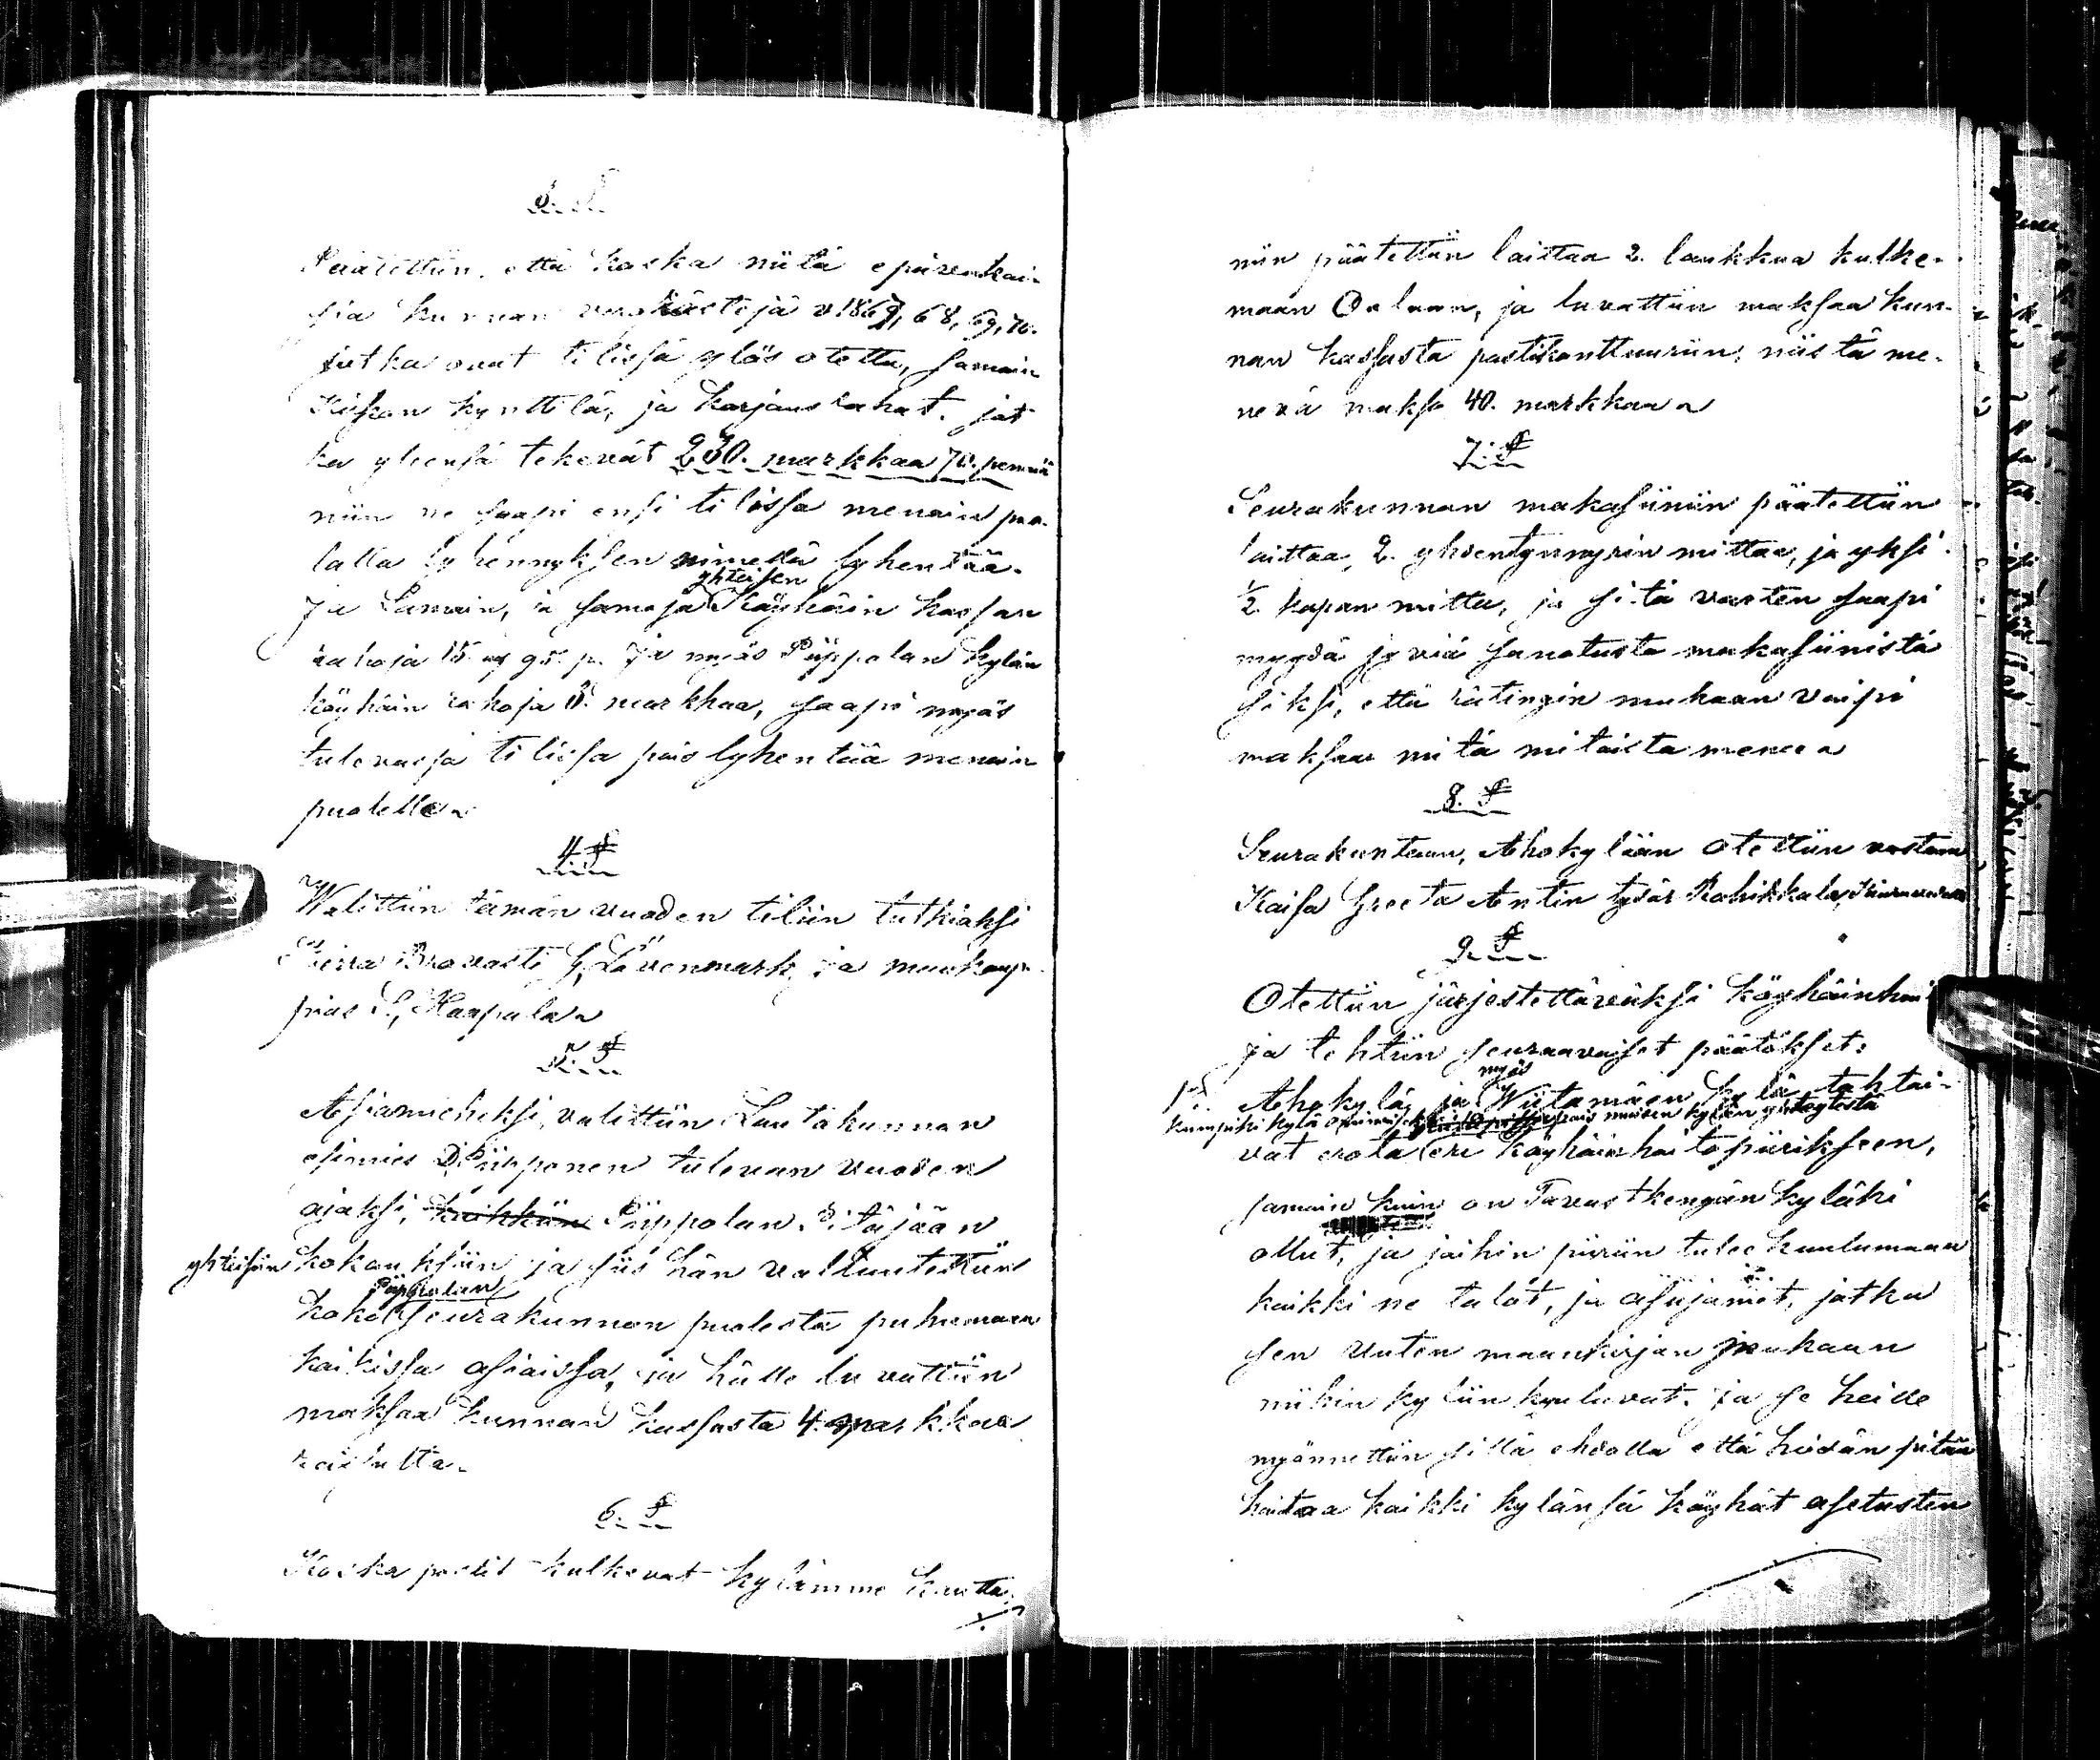 3. §
Päätettiin, että koska niitä epäsenkai-
sia kunnan verorästejä v 1867, 68, 69, 70.
jotka ovat tilissä ylös otettu, samoin
Kirkon kynttilä, ja Karjaus rahat. jot
ka yleensä tekevät 230. markkaa 70. penniä
niin ne saapi ensi tilissä menoin puo-
lalla lyhennyksen nimellä lyhentää.
Ja Samoin, ja samoja yhteisen Köyhäin kassan
rahoja 15. m 95. p. Ja myös Piippolan kylän
köyhäin rahoja 8. markkaa, saapi myös
tulevassa tilissä pois lyhentää menoin
puolella
4 §
Walittiin tämän vuoden tiliin tutkiaksi
Herra Provasti G, Lövenmark, ja maakaup-
pias S, Haapala
5. §
Asiamieheksi, valittiin Lautakunnan
esimies D, Piipponen tulevan vuoden
ajaksi, kaikkiin Piippolan Pitäjään
yhteisiin kokouksiin ja siis hän valtuutettiin
koko Piippolan seurakunnan puolesta puhumaan
kaikissa asiaissa, ja hälle luvattiin
maksaa kunnan kassasta 4. markkaa
reissulta.
6. §
Koska postit kulkevat kylämme kautta
niin päätettiin laittaa 2. laukkua kulke-
maan Ouluun, ja luvattiin maksaa kun-
nan kassasta postikonttuuriin, niistä me-
nevä maksu 40. markkaa
7. §
Seurakunnan makasiiniin päätettiin
laittaa, 2. yhdentynnyrin mittaa, ja yksi
½ kapan mitta, ja sitä varten saapi
myydä jyviä sanotusta makasiinista
siksi, että rätingin mukaan voipi
maksaa mitä mitoista menee
8. §
Seurakuntaan, Ahokylään otettiin vastaan
Kaisa Greeta Antin tytär Rahikkala,
9. §
Otettiin järjestettäväksi köyhäinhoi
ja tehtiin seuraavaiset päätökset:
1. Ahokylä, ja myös Wiitamäen kylä tahtoi-
kumpiki kylä pois muiden kyläin yhteytestä
vat erota eri köyhäin hoitopiirikseen,
samoin kuin on Tavastkengän kyläki
ollut, ja joihin piiriin tulee kuulumaan
kaikki ne talot, ja asujamet, jotka
sen uuten maankirjan mukaan
niihin kyliin kuuluvat. Ja se heille
myönnettiin sillä ehdolla että heidän pitää
hoitaa kaikki kylänsä köyhät asetusten